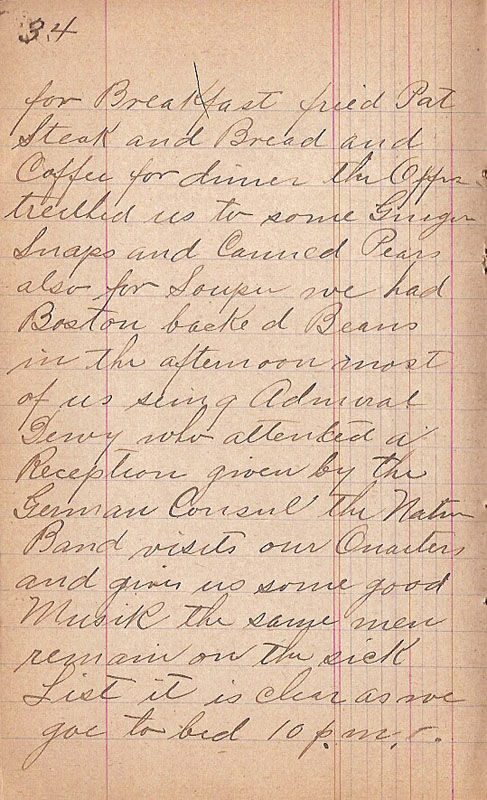 34
for Breakfast fried Pat
Steak and Bread and
Coffee for dinner the Offrs
treethed us to some Ginger
Snaps and Canned Pears
also for Souper we had
Boston backed Beans
in the afternoon most
of us seing Admiral
Dewy who attented a
Reception given by the
German Consul the Nativ
Band visits our Quarters
and gives us some good
Musik the same men
remain on the sick
List it is clear as we
goe to bed 10 p.m.